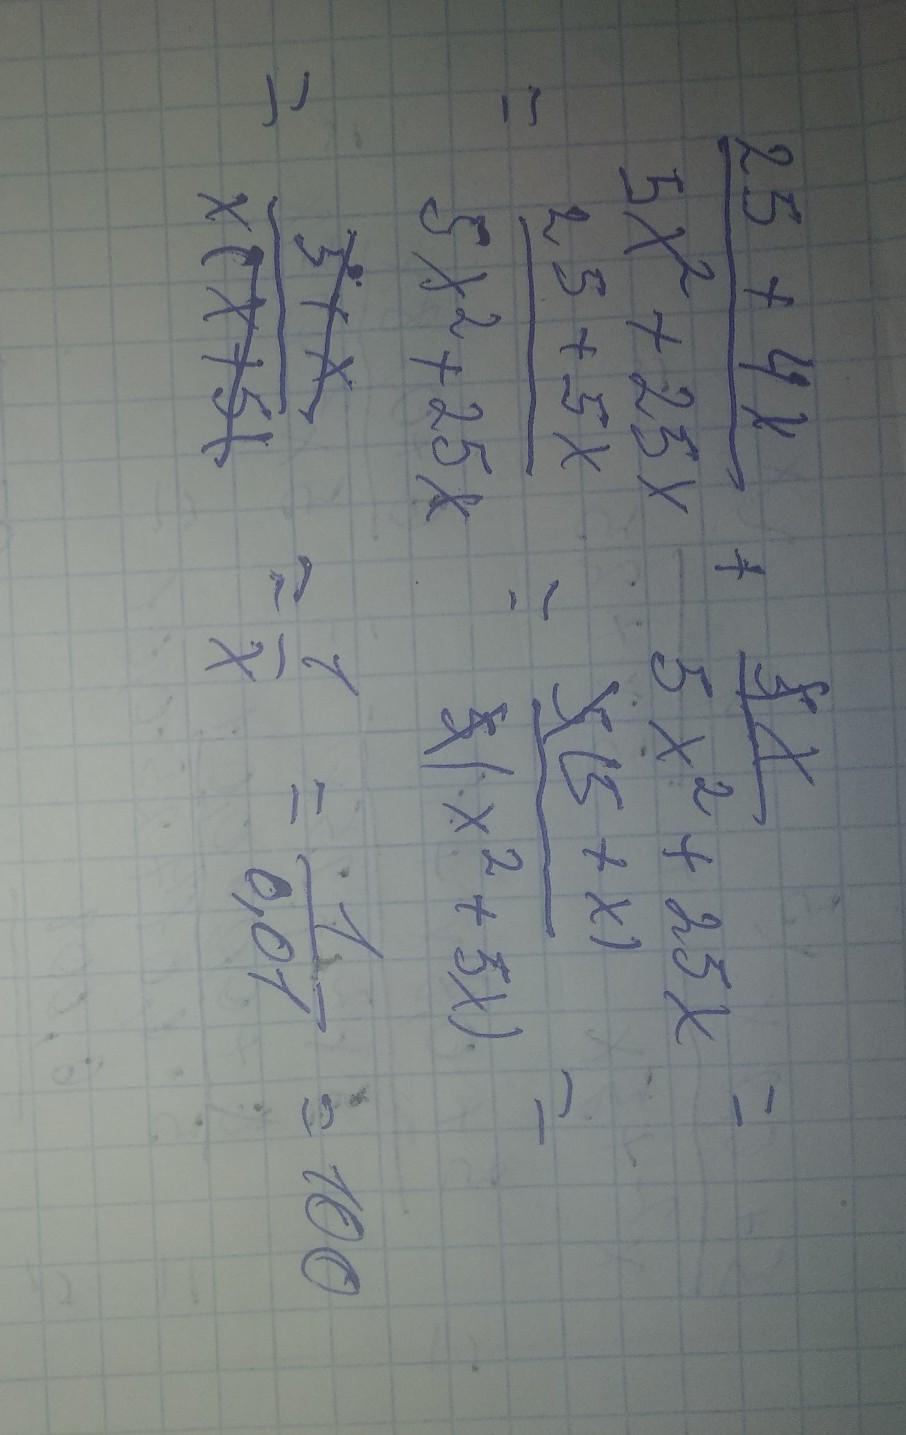 25 + 4x / 5x² + 25x + x / 5x² + 25x =
= 25 + 5x / 5x² + 25x = 5(5 + x) / 5(x² + 5x) =
= 5 + x / x(x + 5) = 1 / x = 1 / 0,01 = 100